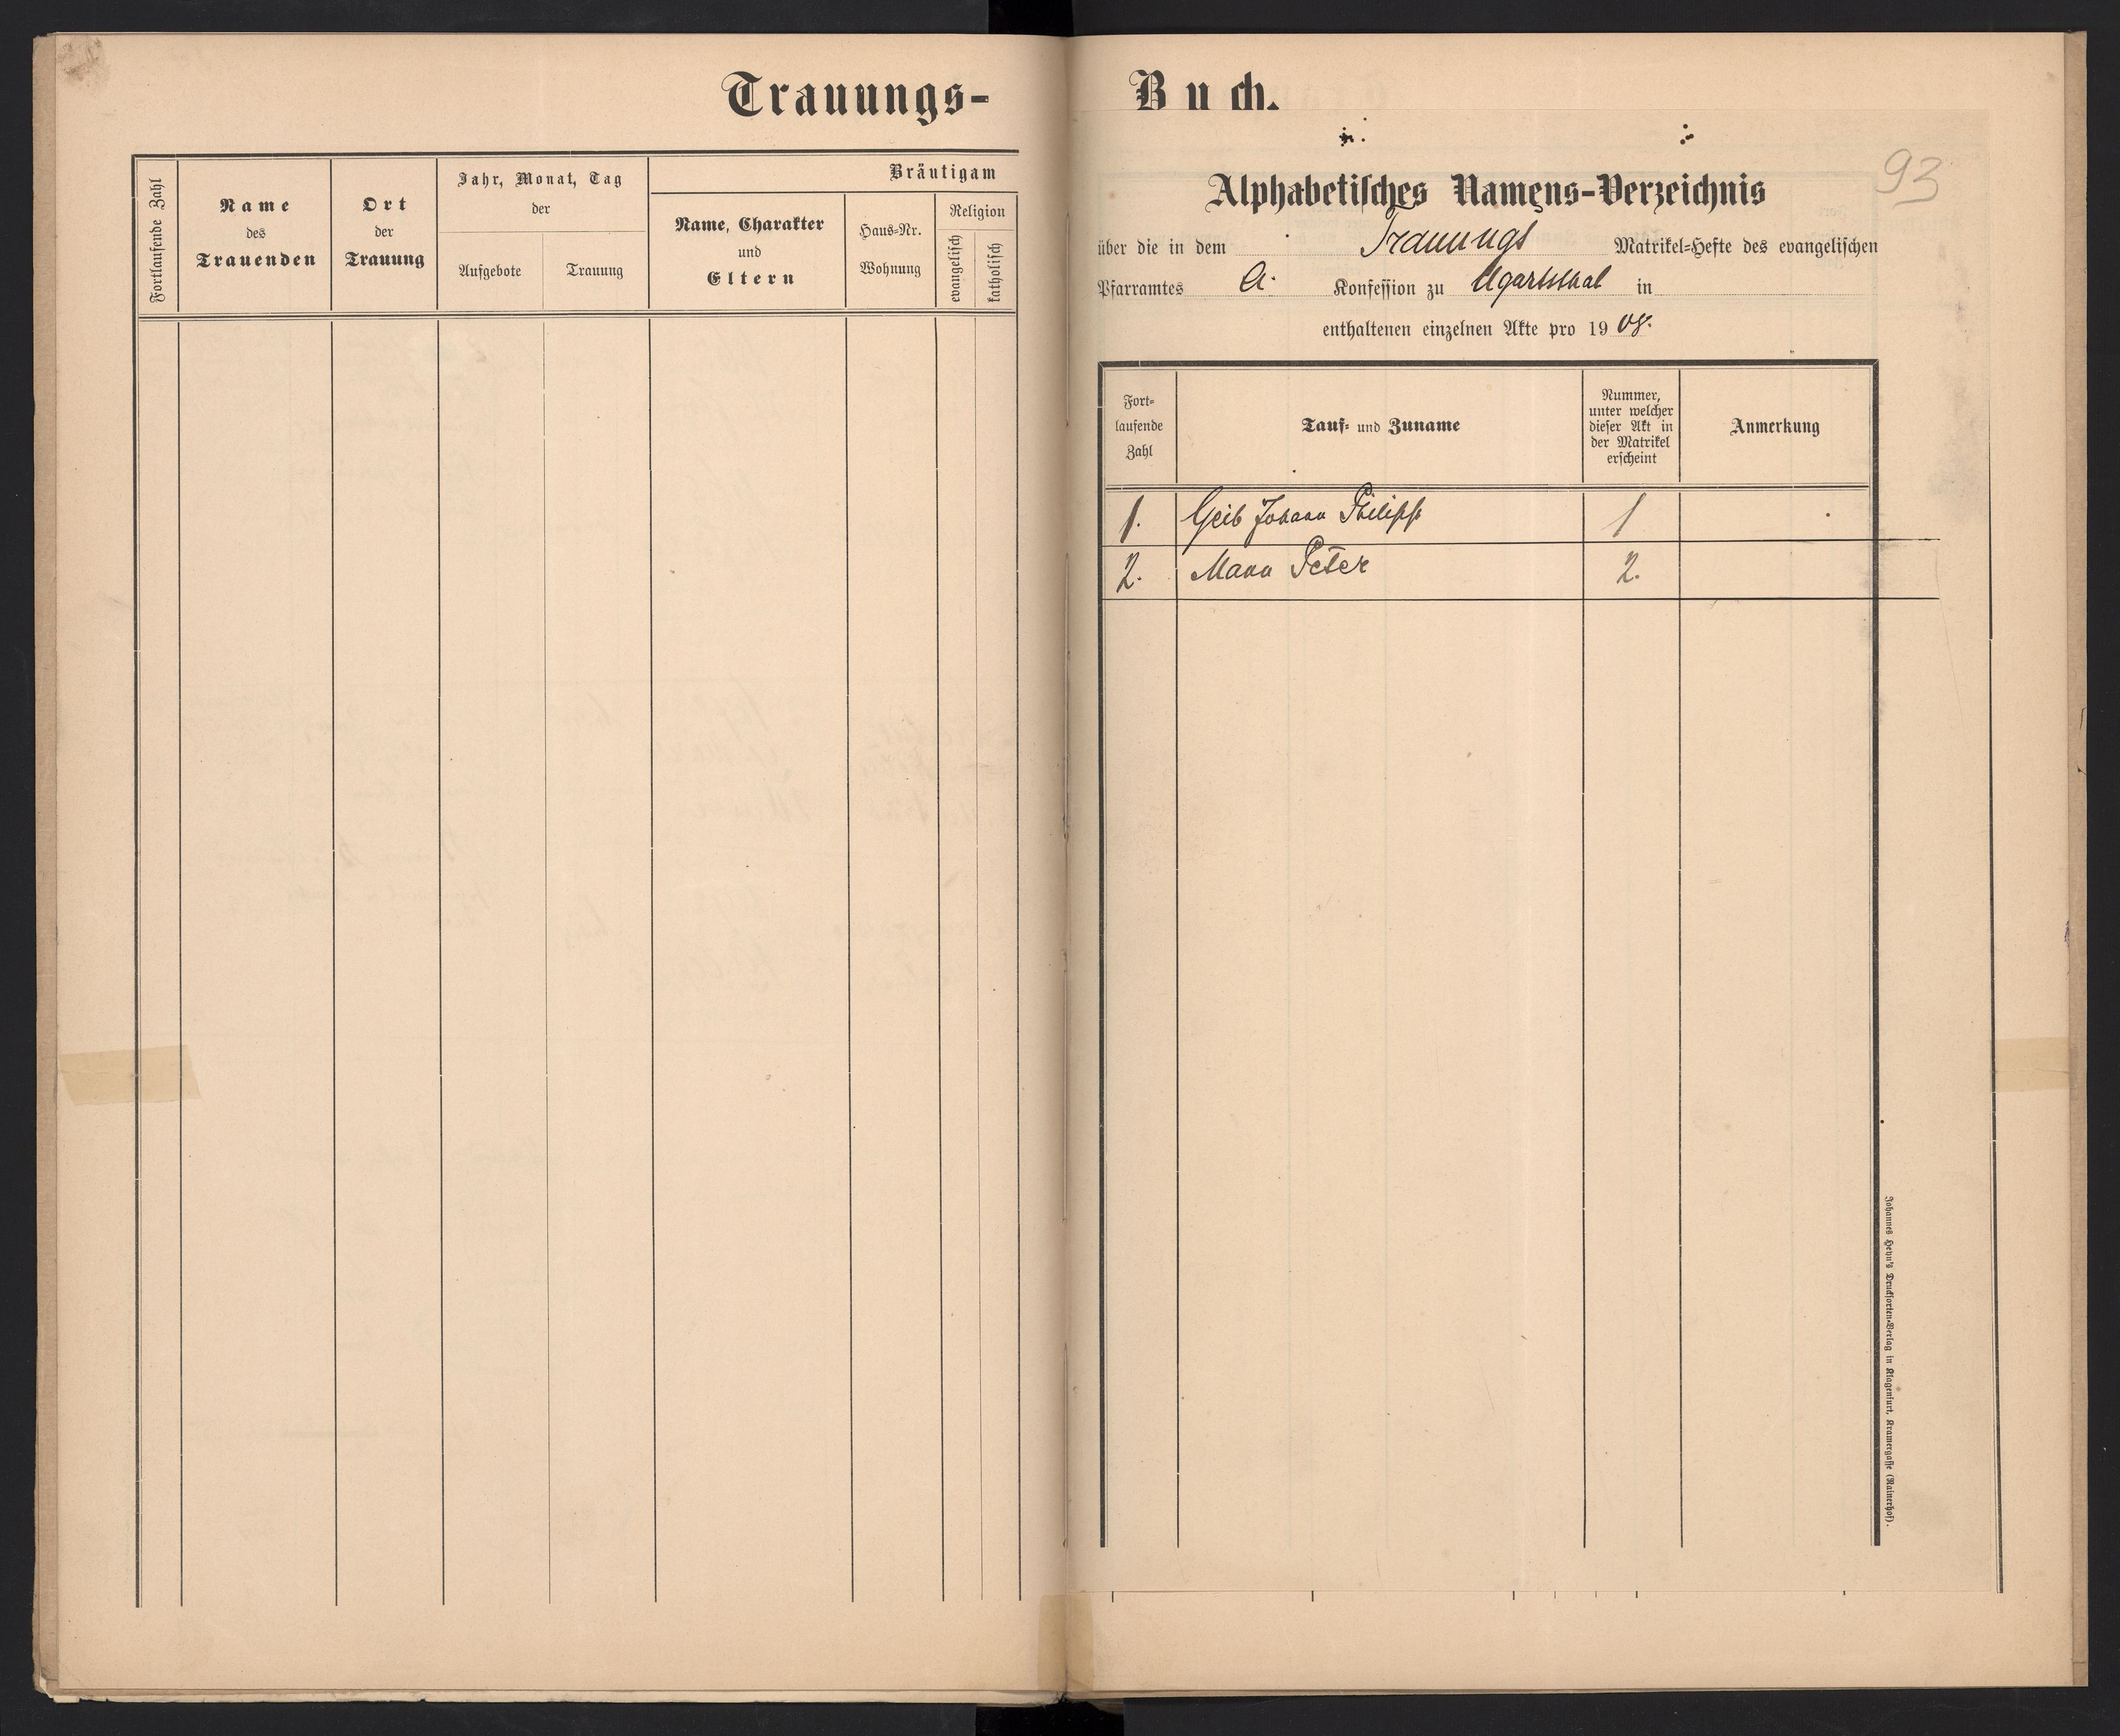 Trauungs-
Fortlaufende Zahl
Name
des
Trauenden
Ort
der
Trauung
Jahr, Monat, Tag
der
Aufgebote
Trauung
Bräutigam
Name, Charakter
und
Eltern
Haus-Nr.
Wohnung
Religion
evangelisch
katholisch
Buch.
93
Alphabetisches Namens-Verzeichnis
über die in dem Trauungs Matrikel-Hefte des evangelischen
Pfarramtes A. Konfession zu Ugartsthal in
enthaltenen einzelnen Akte pro 19 08.
Fort-
laufende
Zahl
Tauf- und Zuname
Nummer,
unter welcher
dieser Akt in
der Matrikel
erscheint
Anmerkung
1. Geib Johann Philipp 1
2. Mann Peter 2.
Johannes Heyn's Drucksorten-Verlag in Klagenfurt, Kramergasse (Rainerhof).